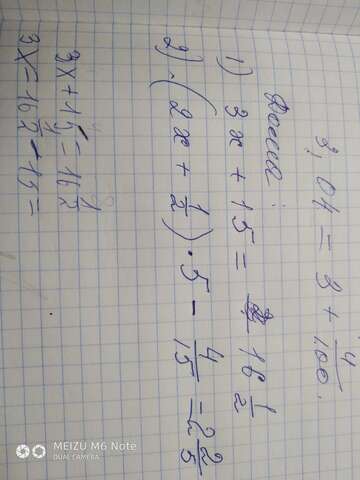 3,04 = 3 + 4/100.
1) 3x + 15 = 16 1/2
2) (2x + 1/2) · 5 - 4/15 = 2 2/5
3x + 15 = 16 1/2
3x = 16 1/2 - 15 =
MEIZU M6 Note
DUAL CAMERA